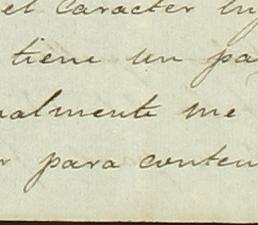 el Caracter
tiene un pa
almente me
r para conten